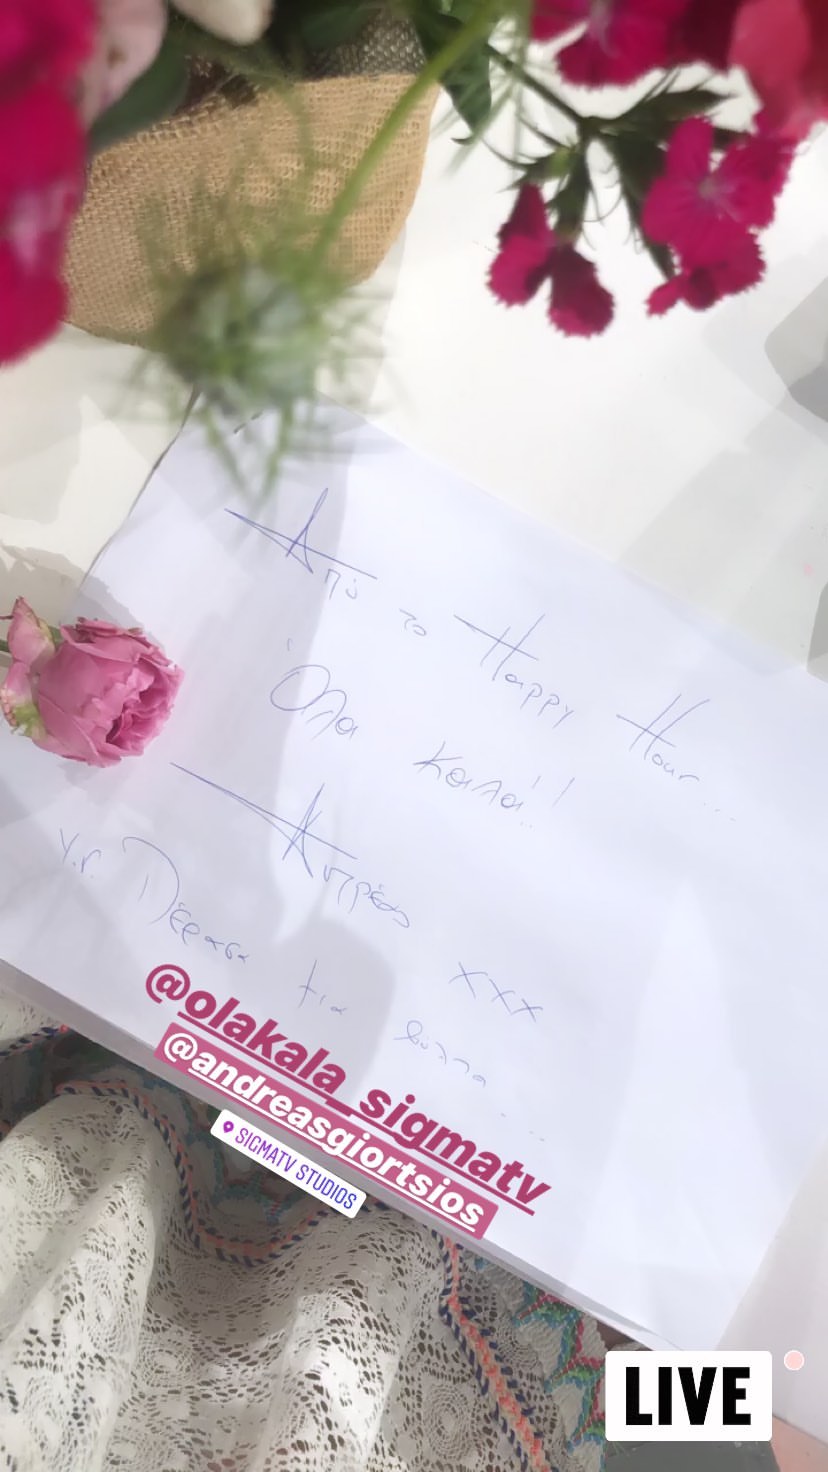 Από το Happy Hour...
Όλα Καλά!!
Αντρέας xxx
Υ.Γ. Πέρασα για βόλτα...
@olakala_sigmatv
@andreasgiortsios
SIGMATV STUDIOS
LIVE